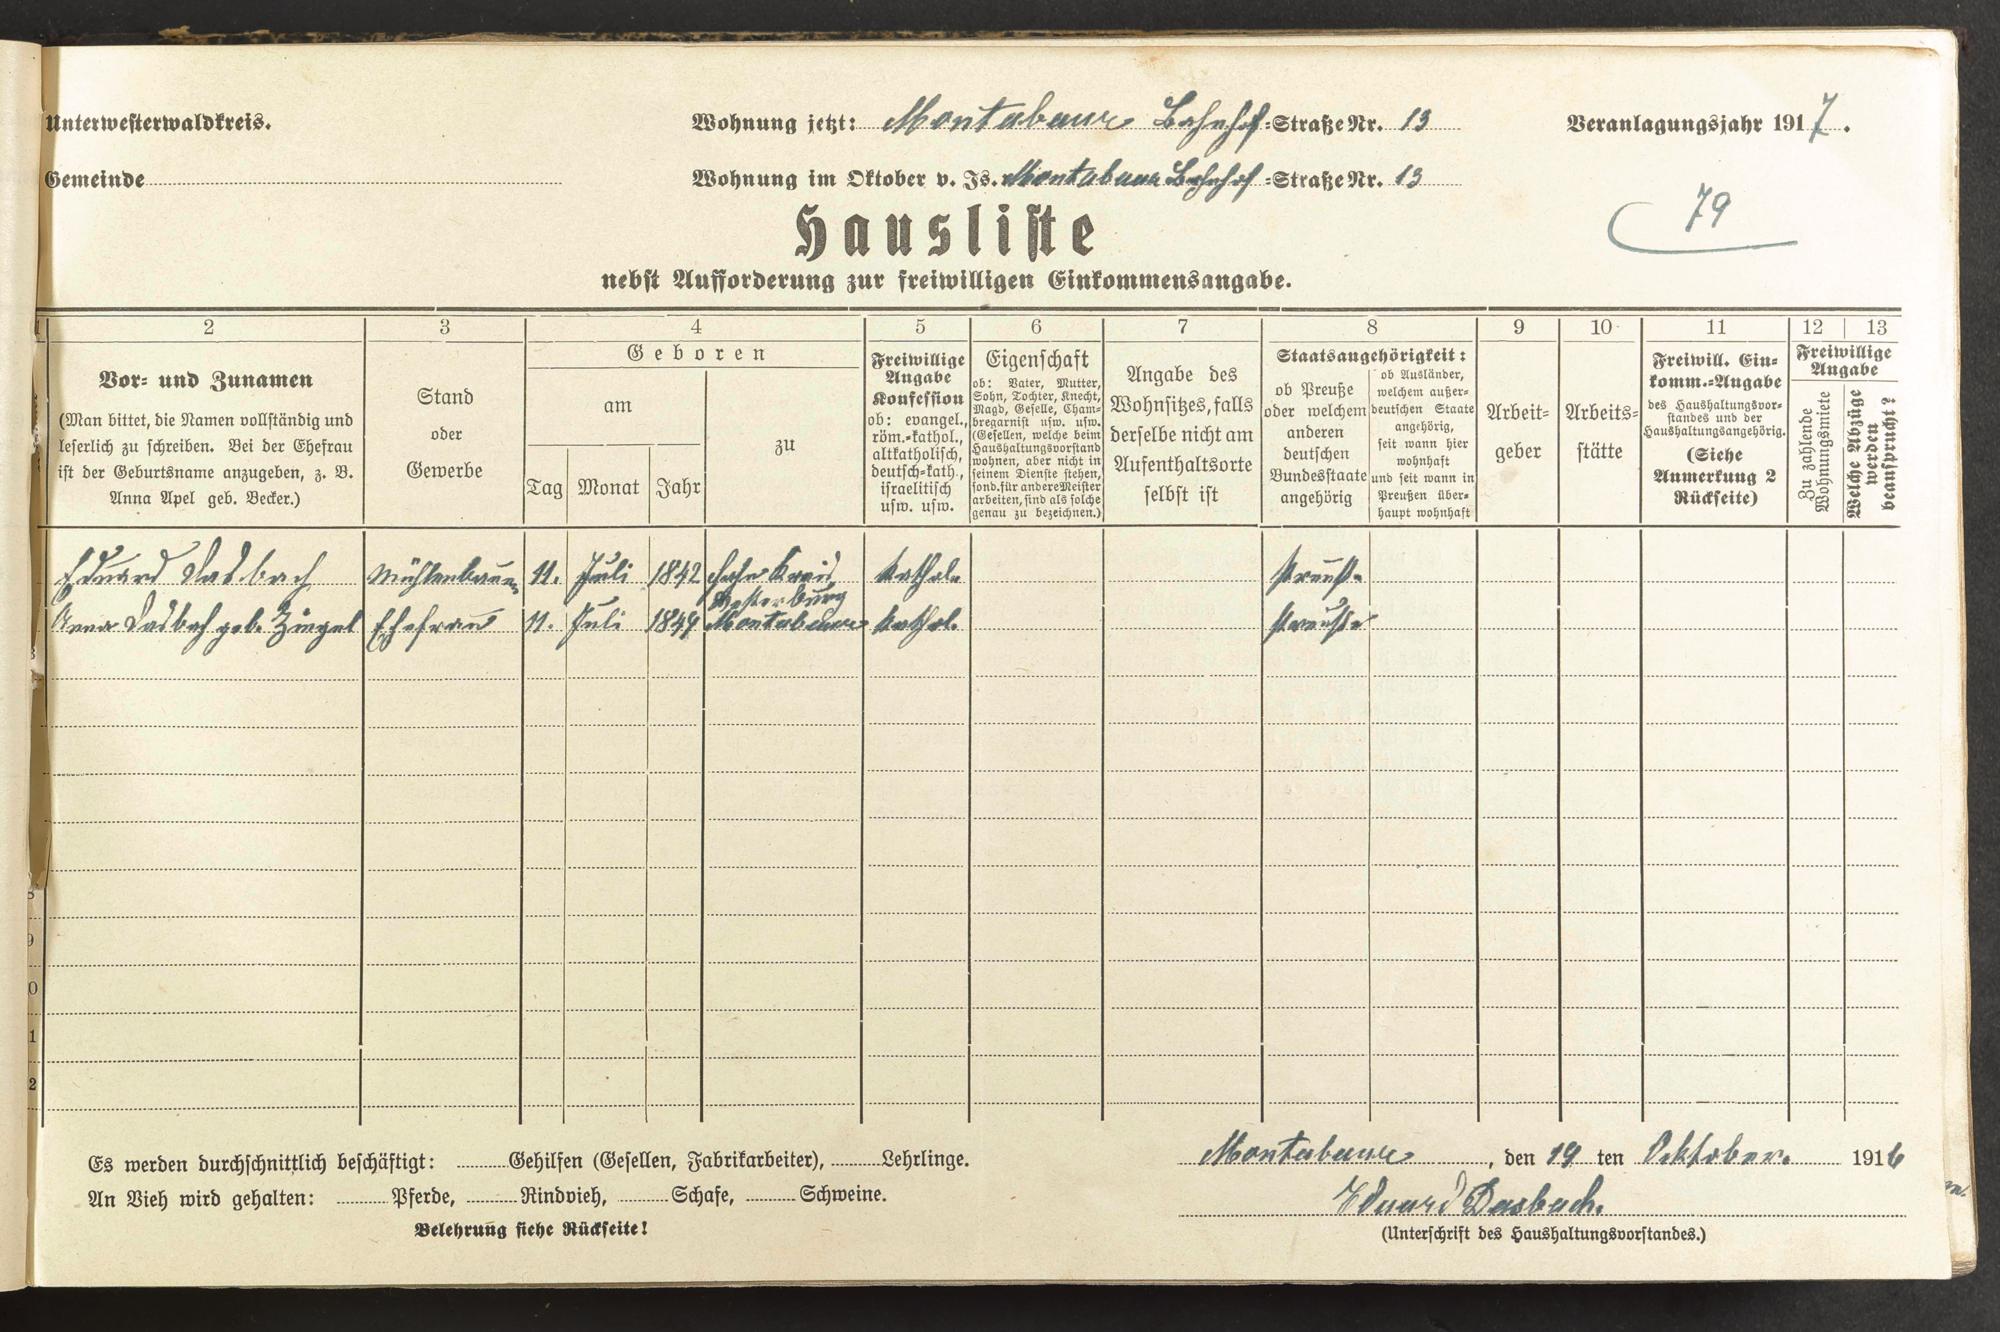 Unterwesterwaldkreis.
Wohnung jetzt: Montabaur Bahnhof-Straße Nr. 13
Veranlagungsjahr 1917.
Gemeinde
Wohnung im Oktober v. Js. Montabaur Bahnhof-Straße Nr. 13
79
Hausliste
nebst Aufforderung zur freiwilligen Einkommensangabe.
1 2 3 4 5 6 7 8 9 10 11 12 13
Vor- und Zunamen
(Man bittet, die Namen vollständig und
leserlich zu schreiben. Bei der Ehefrau
ist der Geburtsname anzugeben, z. B.
Anna Apel geb. Becker.)
Stand
oder
Gewerbe
Geboren
am
Tag Monat Jahr
zu
Freiwillige
Angabe
Konfession
ob: evangel.,
röm.-kathol.,
altkatholisch,
deutsch-kath.,
israelitisch
usw. usw.
Eigenschaft
ob: Vater, Mutter,
Sohn, Tochter, Knecht,
Magd, Geselle, Cham-
bregarnist usw. usw.
(Gesellen, welche beim
Haushaltungsvorstand
wohnen, aber nicht in
seinem Dienste stehen,
sond. für andere Meister
arbeiten, sind als solche
genau zu bezeichnen.)
Angabe des
Wohnsitzes, falls
derselbe nicht am
Aufenthaltsorte
selbst ist
Staatsangehörigkeit:
ob Preuße
oder welchem
anderen
deutschen
Bundesstaate
angehörig
ob Ausländer,
welchem außer-
deutschen Staate
angehörig,
seit wann hier
wohnhaft
und seit wann in
Preußen über-
haupt wohnhaft
Arbeit-
geber
Arbeits-
stätte
Freiwill. Ein-
komm.-Angabe
des Haushaltungsvor-
standes und der
Haushaltungsangehörig.
(Siehe
Anmerkung 2
Rückseite)
Freiwillige
Angabe
Zu zahlende
Wohnungsmiete
Welche Abzüge
werden
beansprucht?
Eduard Dasbach Mühlenbauer 11. Juli 1842 Hahn Kreis Westerburg Kathol. Preuße
Anna Dasbach geb. Zingel Ehefrau 11. Juli 1849 Montabaur Kathol. Preuße
8
9
0
1
2
Es werden durchschnittlich beschäftigt: Gehilfen (Gesellen, Fabrikarbeiter), Lehrlinge.
An Vieh wird gehalten: Pferde, Rindvieh, Schafe, Schweine.
Belehrung siehe Rückseite!
Montabaur, den 19 ten Oktober. 1916
Eduard Dasbach.
(Unterschrift des Haushaltungsvorstandes.)